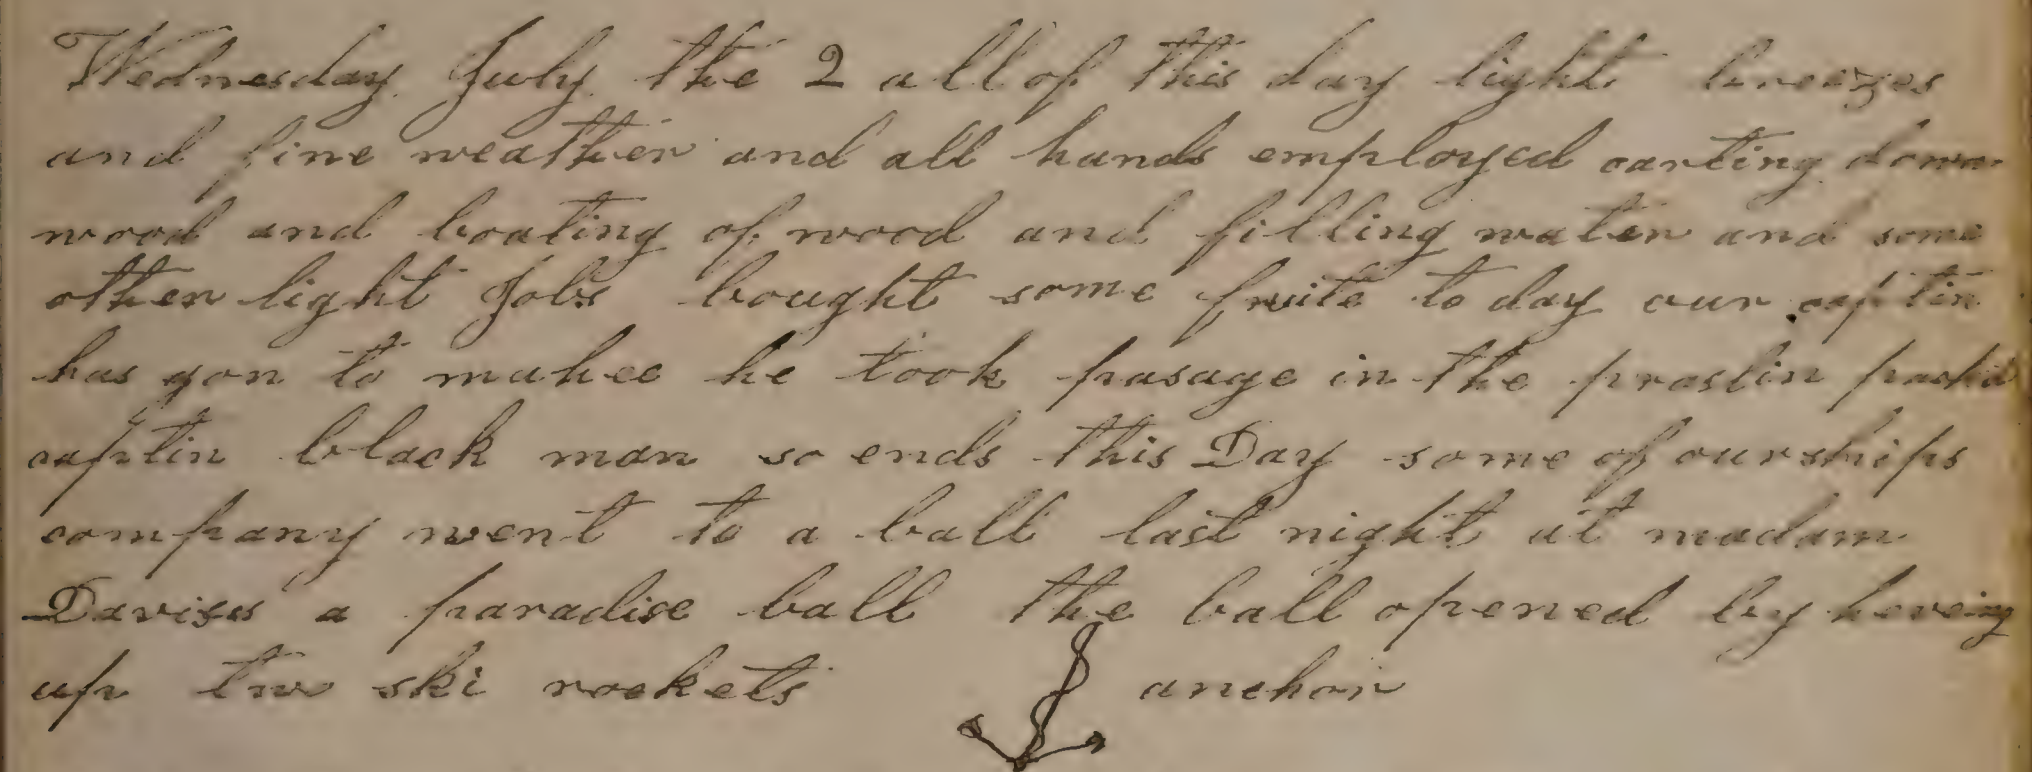 Wednesday July the 2 all of this day light breezes
and fine weather and all hands employed carting down
wood and boating of wood and filling water and some
other light Jobs bought some fruite to day our captin
has gon to mahee he took pasage in the praslin
captin black man so ends this Day some of our ships
company went to a ball last night at madam
a paradise ball the ball opened by heveing
up tw ski rockets anchor